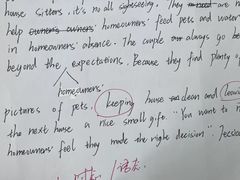 house sitters, it's no all sightseeing. They need are
help owners owners' homeowners' feed pets and water
in homeowners' absence. The couple always go be
beyond the expectations. Because they find plenty o
homeowners'
pictures of pets, keeping house clean and leavi
the next house a nice small gift. "You want to
homeowners feel they made the right decision." Jess